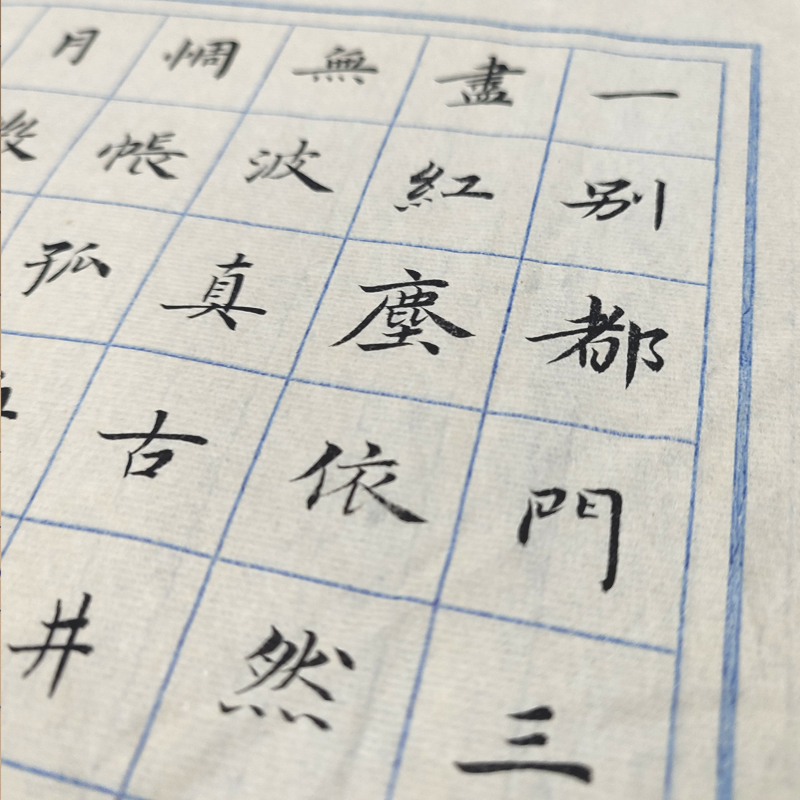 一别都門三
盡紅塵依然
無波真古井
惆帳孤
月